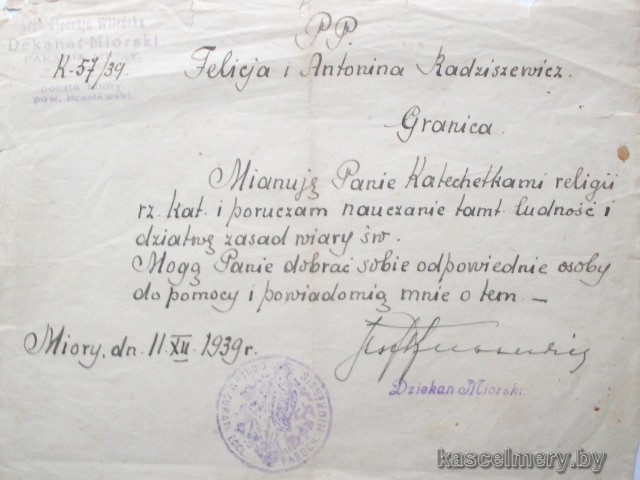 Archidiecezja Wileńska
Dekanat Miorski
K-57/39.
poczta Miory
pow. Brasławski.
P.P.
Felicja i Antonina Radziszewicz.
Granica.
Mianuję Panie Katechetkami religii
rz. kat. i poruczam nauczanie tamt. ludność i
dziatwę zasad wiary św.
Mogą Panie dobrać sobie odpowiednie osoby
do pomocy i powiadomią mnie o tem. —
Miory, dn. 11.XII. 1939 r.
Dziekan Miorski
kascelmery.by